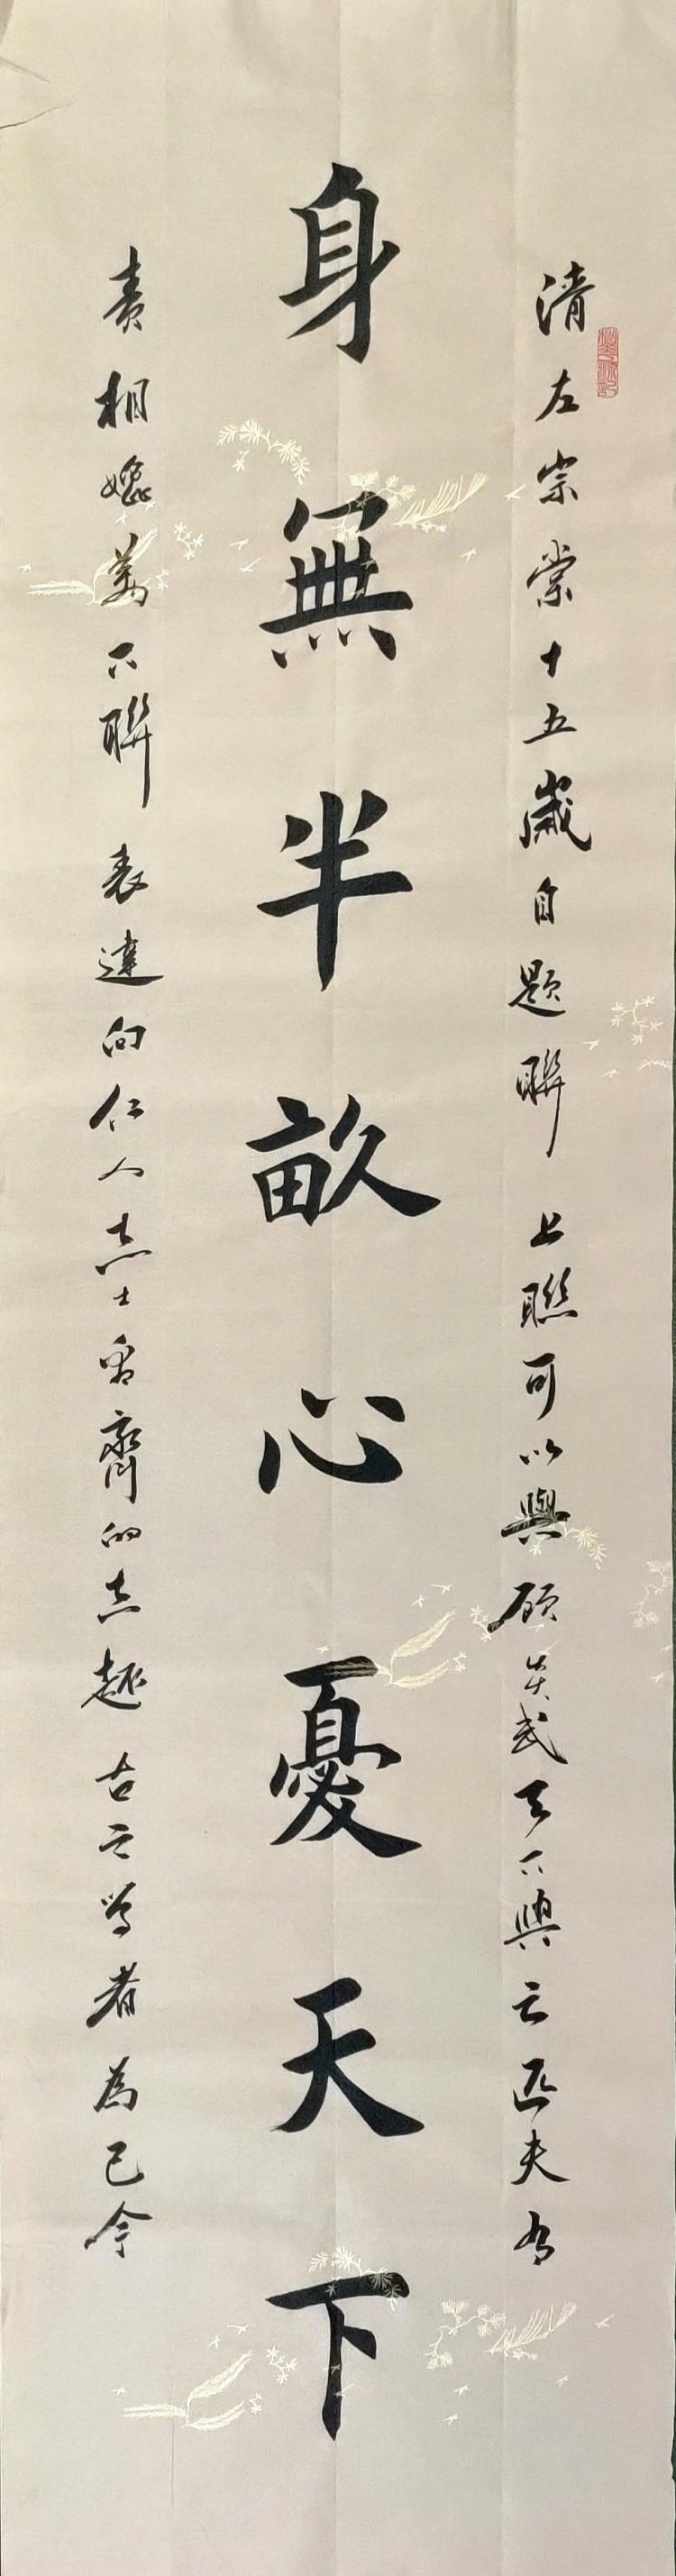 清左宗棠十五歲自題聯 上聯可以與顾炎武天下興亡匹夫有
身無半畝心憂天下
責相媲美下聯 表達向仁人志士看齊的志趣 古之学者為己今